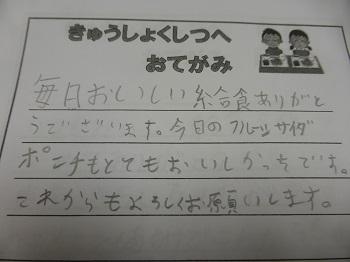 きゅうしょくしつへ
おてがみ
毎日おいしい給食ありがと
うございます。今日のフルーツサイダ
ポンチもとてもおいしかったです。
これからもよろしくお願いします。